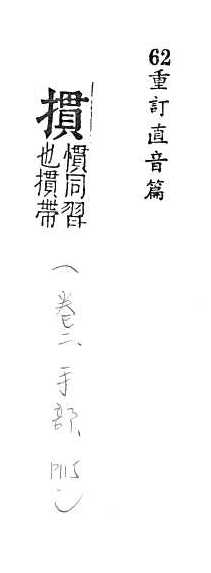 62重訂直音篇
摜慣同習
也摜帶
(卷二、手部、P115)